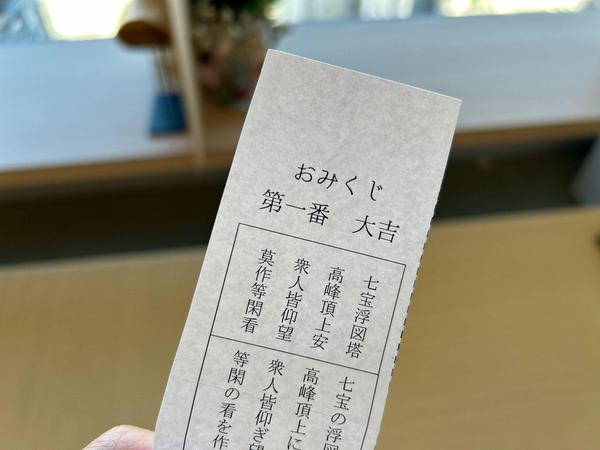 おみくじ
第一番 大吉
七宝浮図塔
高峰頂上安
衆人皆仰望
莫作等閑看
七宝の浮図
高峰頂上に
衆人皆仰ぎ望
等閑の看を作